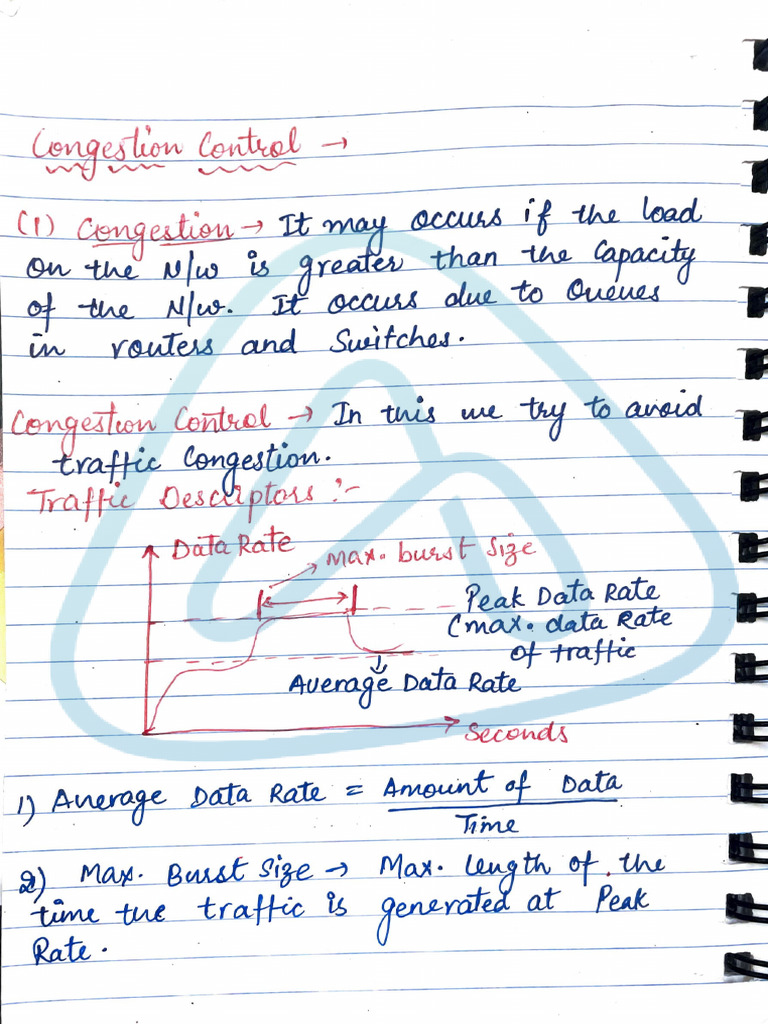 Congestion Control →
(1) Congestion → It may occurs if the load
on the N/w is greater than the Capacity
of the N/w. It occurs due to Queues
in routers and Switches.
Congestion Control → In this we try to avoid
traffic Congestion.
Traffic Descriptors :-
Data Rate
Max. burst size
Peak Data Rate
(max. data Rate
of traffic
Average Data Rate
Seconds
1) Average Data Rate = Amount of Data
Time
2) Max. Burst Size → Max. length of the
time the traffic is generated at Peak
Rate.